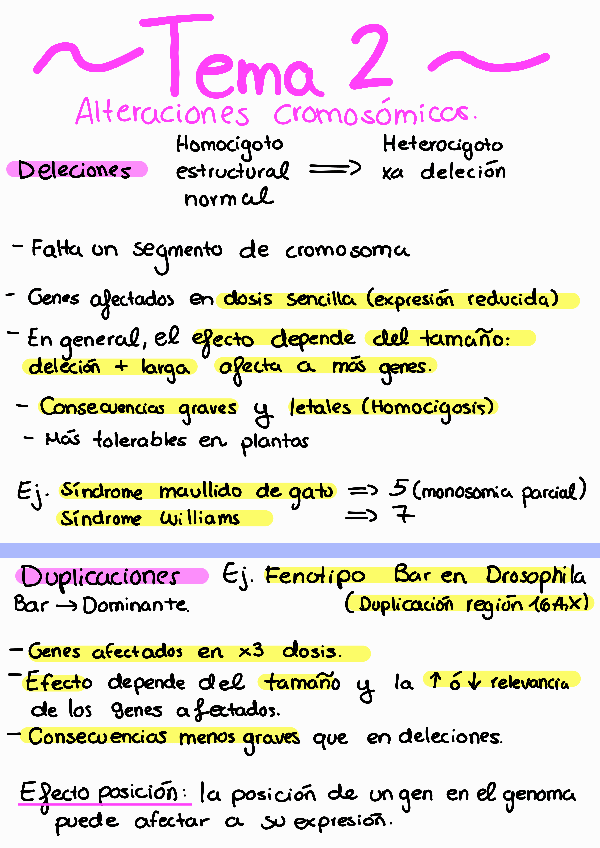 ~ Tema 2 ~
Alteraciones cromosómicas.
Deleciones Homocigoto estructural normal => Heterocigoto xa deleción
- Falta un segmento de cromosoma
- Genes afectados en dosis sencilla (expresión reducida)
- En general, el efecto depende del tamaño:
deleción + larga afecta a más genes.
- Consecuencias graves y letales (Homocigosis)
- Más tolerables en plantas
Ej. Síndrome maullido de gato => 5 (monosomia parcial)
Síndrome Williams => 7
Duplicaciones Ej. Fenotipo Bar en Drosophila
Bar → Dominante. (Duplicación región 16A,X)
- Genes afectados en x3 dosis.
- Efecto depende del tamaño y la ↑ ó ↓ relevancia
de los genes afectados.
- Consecuencias menos graves que en deleciones.
Efecto posición: la posición de un gen en el genoma
puede afectar a su expresión.